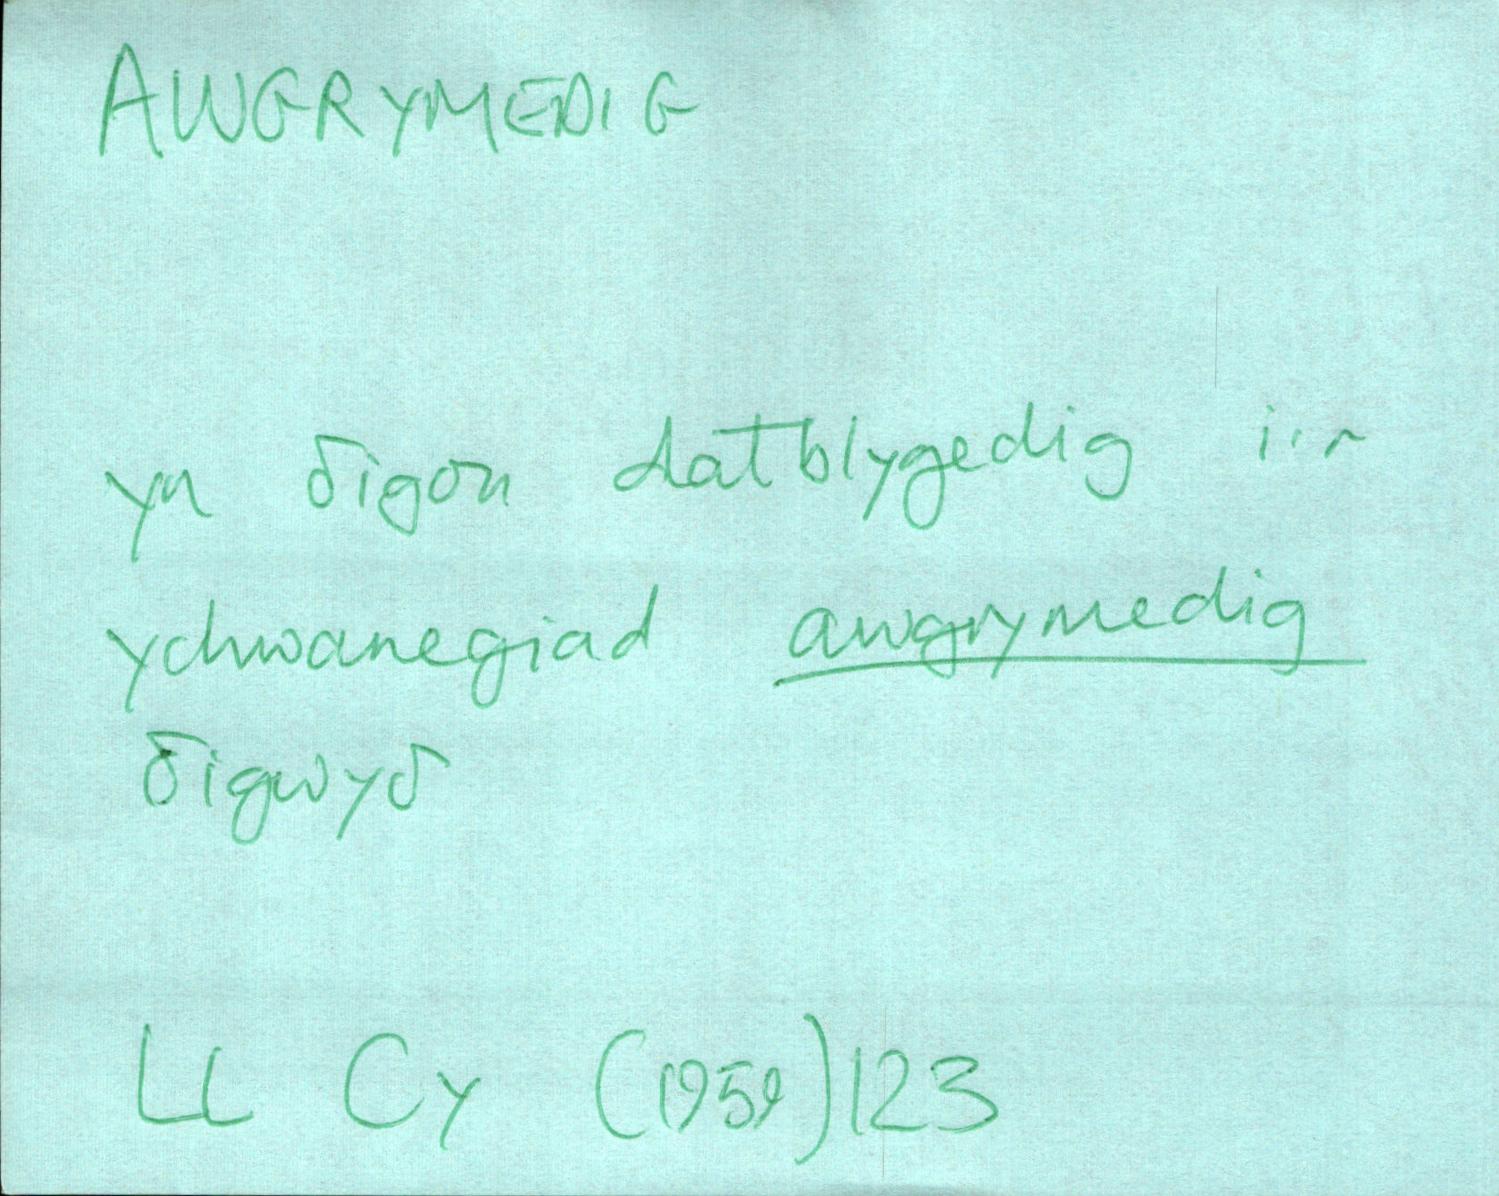 AWGRYMEDIG
yn δigon datblygedig i'r
ychwanegiad awgrymedig
δigwyδ
LL Cy (1959) 123